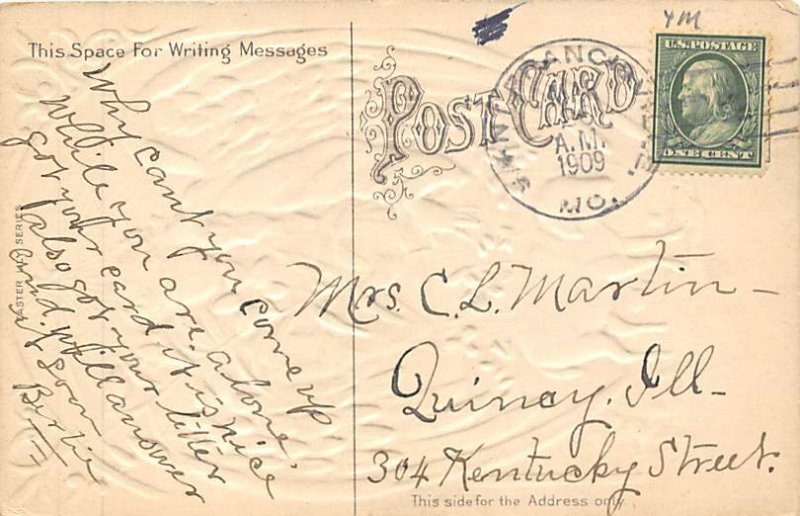 This Space For Writing Messages
Why cant you come up
while you are alone.
got your card, it is nice
also got your letter
and will answer
it soon
Birtie
EASTER LILY SERIES
POST CARD
A.M.
1909
MO.
U.S. POSTAGE
ONE CENT
Mrs. C. L. Martin -
Quincy, Ill -
304 Kentucky Street.
This side for the Address only